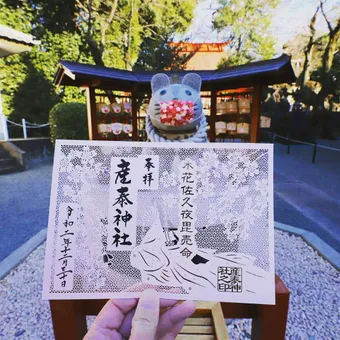 木花佐久夜毘売命
奉拝
産泰神社
令和二年十二月三十日
産泰神社之印